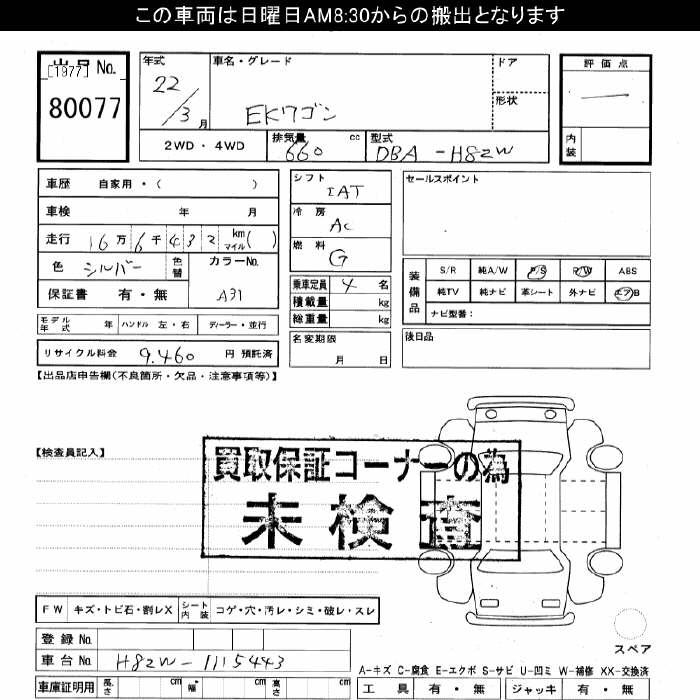 この車両は日曜日AM8:30からの搬出となります
出品 No.
[1977]
80077
年式 22/3 月
車名・グレード EKワゴン
ドア
形状
評価点 —
内装
2WD・4WD
排気量 660 cc
型式 DBA-H82W
車歴 自家用・( )
車検 年 月
走行 16万6千432 km マイル( )
色 シルバー 色替
カラーNo. A31
保証書 有・無
モデル年式 年 ハンドル 左・右 ディーラー・並行
リサイクル料金 9,460 円 預託済
シフト IAT
冷房 AC
燃料 G
乗車定員 4 名
積載量 kg
総重量 kg
名変期限 月 日
セールスポイント
装備品
S/R 純A/W P/S P/W ABS
純TV 純ナビ 革シート 外ナビ エアB
ナビ型番：
後日品
【出品店申告欄(不良箇所・欠品・注意事項等)】
【検査員記入】
買取保証コーナーの為
未検査
FW キズ・トビ石・割レX
シート内装 コゲ・穴・汚レ・シミ・破レ・スレ
登録 No.
車台 No. H82W-1115443
車庫証明用 長さ cm 幅 cm 高さ cm
スペア
A-キズ C-腐食 E-エクボ S-サビ U-凹ミ W-補修 XX-交換済
工具 有・無 ジャッキ 有・無